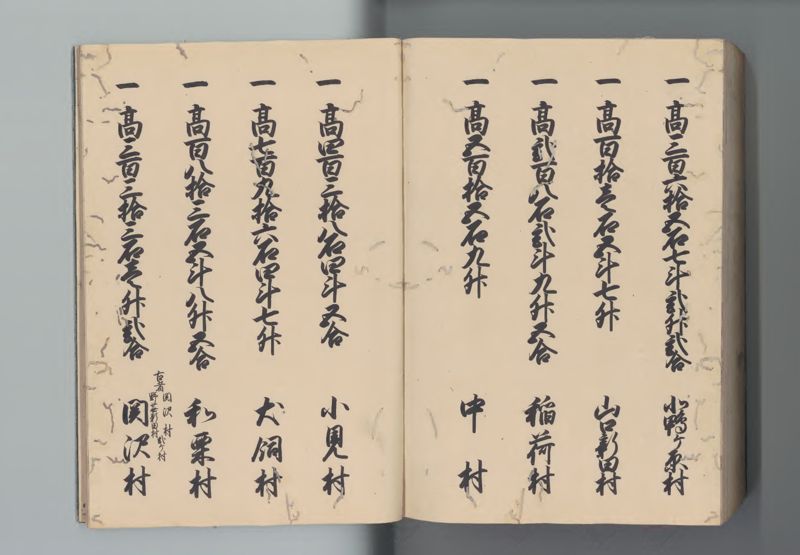 一 高三百六拾五石七斗弐升弐合 小鴨ヶ原村
一 高百拾壱石五斗七升 山口新田村
一 高弐百八石弐斗九升五合 稲荷村
一 高五百拾五石九升 中村
一 高四百三拾八石四斗五合 小見村
一 高七百九拾六石四斗七升 犬飼村
一 高百八拾三石五斗八升五合 和栗村
古者関沢村
野新田村弐ヶ村
一 高三百三拾三石壱升弐合 関沢村